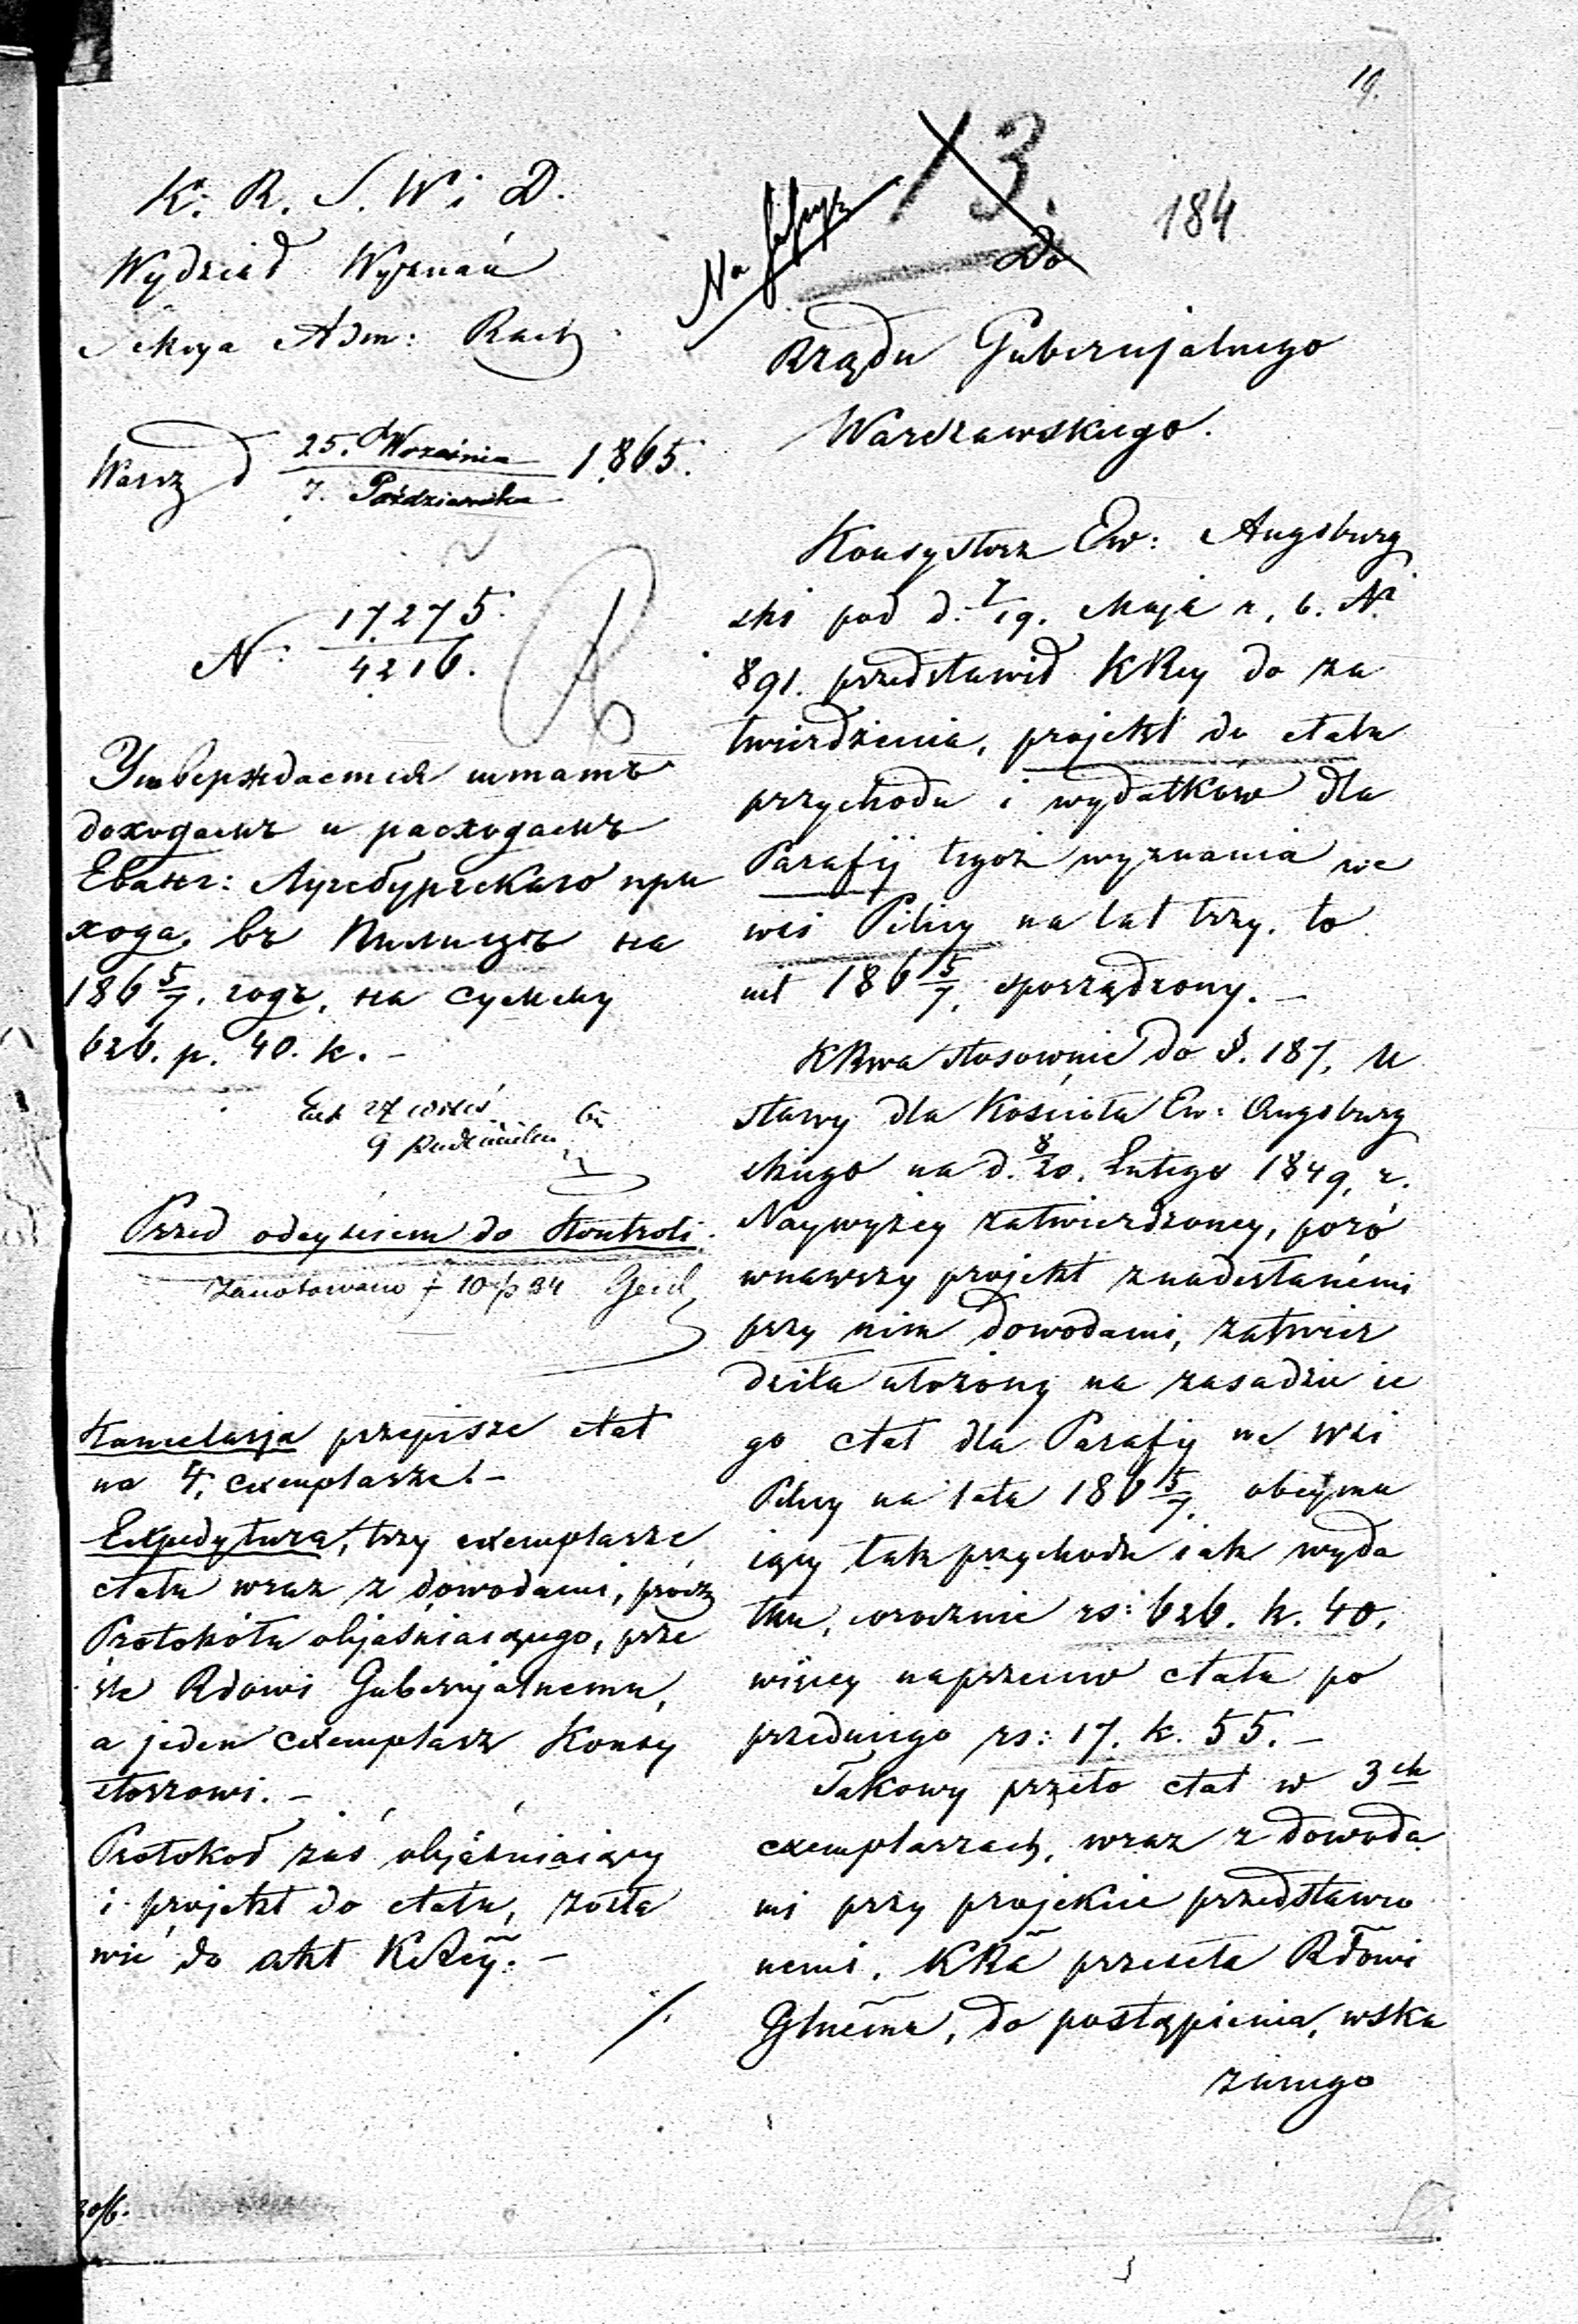 19.
K. R. S. W i D.
Wydział Wyznań
Sekcya Adm: Rach
Warsz d 25. Września / 7. Października 1865.
N: 17275. / 4216.
Утверждается штатъ
доходамъ и расходамъ
Еванг: Аугсбургскаго при
хода, въ Пилицѣ на
186 5/7. годъ, на сумму
626. р. 40. к. –
Przed odeyściem do Kontroli.
Zanotowano
Kancelarja przepisze etat
na 4. exemplarze. –
Expedytura, trzy exemplarze
etatu wraz z dowodami, prócz
Protokółu objaśniaiącego, prze
śle Rdowi Gubernjalnemu,
a jeden exemplarz Konsy
storzowi. –
Protokoł zaś objaśniaiący
i projekt do etatu, zosta
wić do akt KRcy. –
13.
184
Do
Rządu Gubernjalnego
Warszawskiego.
Konsystorz Ew: Augsburg
ski pod d. 7/19. Maja r. b. N.
891. przedstawił KRcy do za
twierdzenia, projekt do etatu
przychodu i wydatków dla
Parafij tegoż wyznania we
wsi Pilicy na lat trzy. to
iest 186 5/7. sporządzony. –
KRwa stosownie do §. 187, U
stawy dla Kościoła Ew: Augsburg
skiego na d. 8/20. Lutego 1849, r.
Naywyżey zatwierdzoney, poró
wnawszy projekt z nadesłanémi
przy nim dowodami, zatwier
dziła ułożony na zasadzie ie
go etat dla Parafij we Wsi
Pilicy na lata 186 5/7. obeyma
iący tak przychodu iak wyda
tku, corocznie rs: 626. k. 40.
więcey naprzeciw etatu po
przedniego rs: 17. k. 55. –
Takowy przeto etat w 3ch
exemplarzach, wraz z dowoda
mi przy projekcie przedstawio
nemi, KRa przeseła Rdowi
Glnemu, do postąpienia, wska
zanego